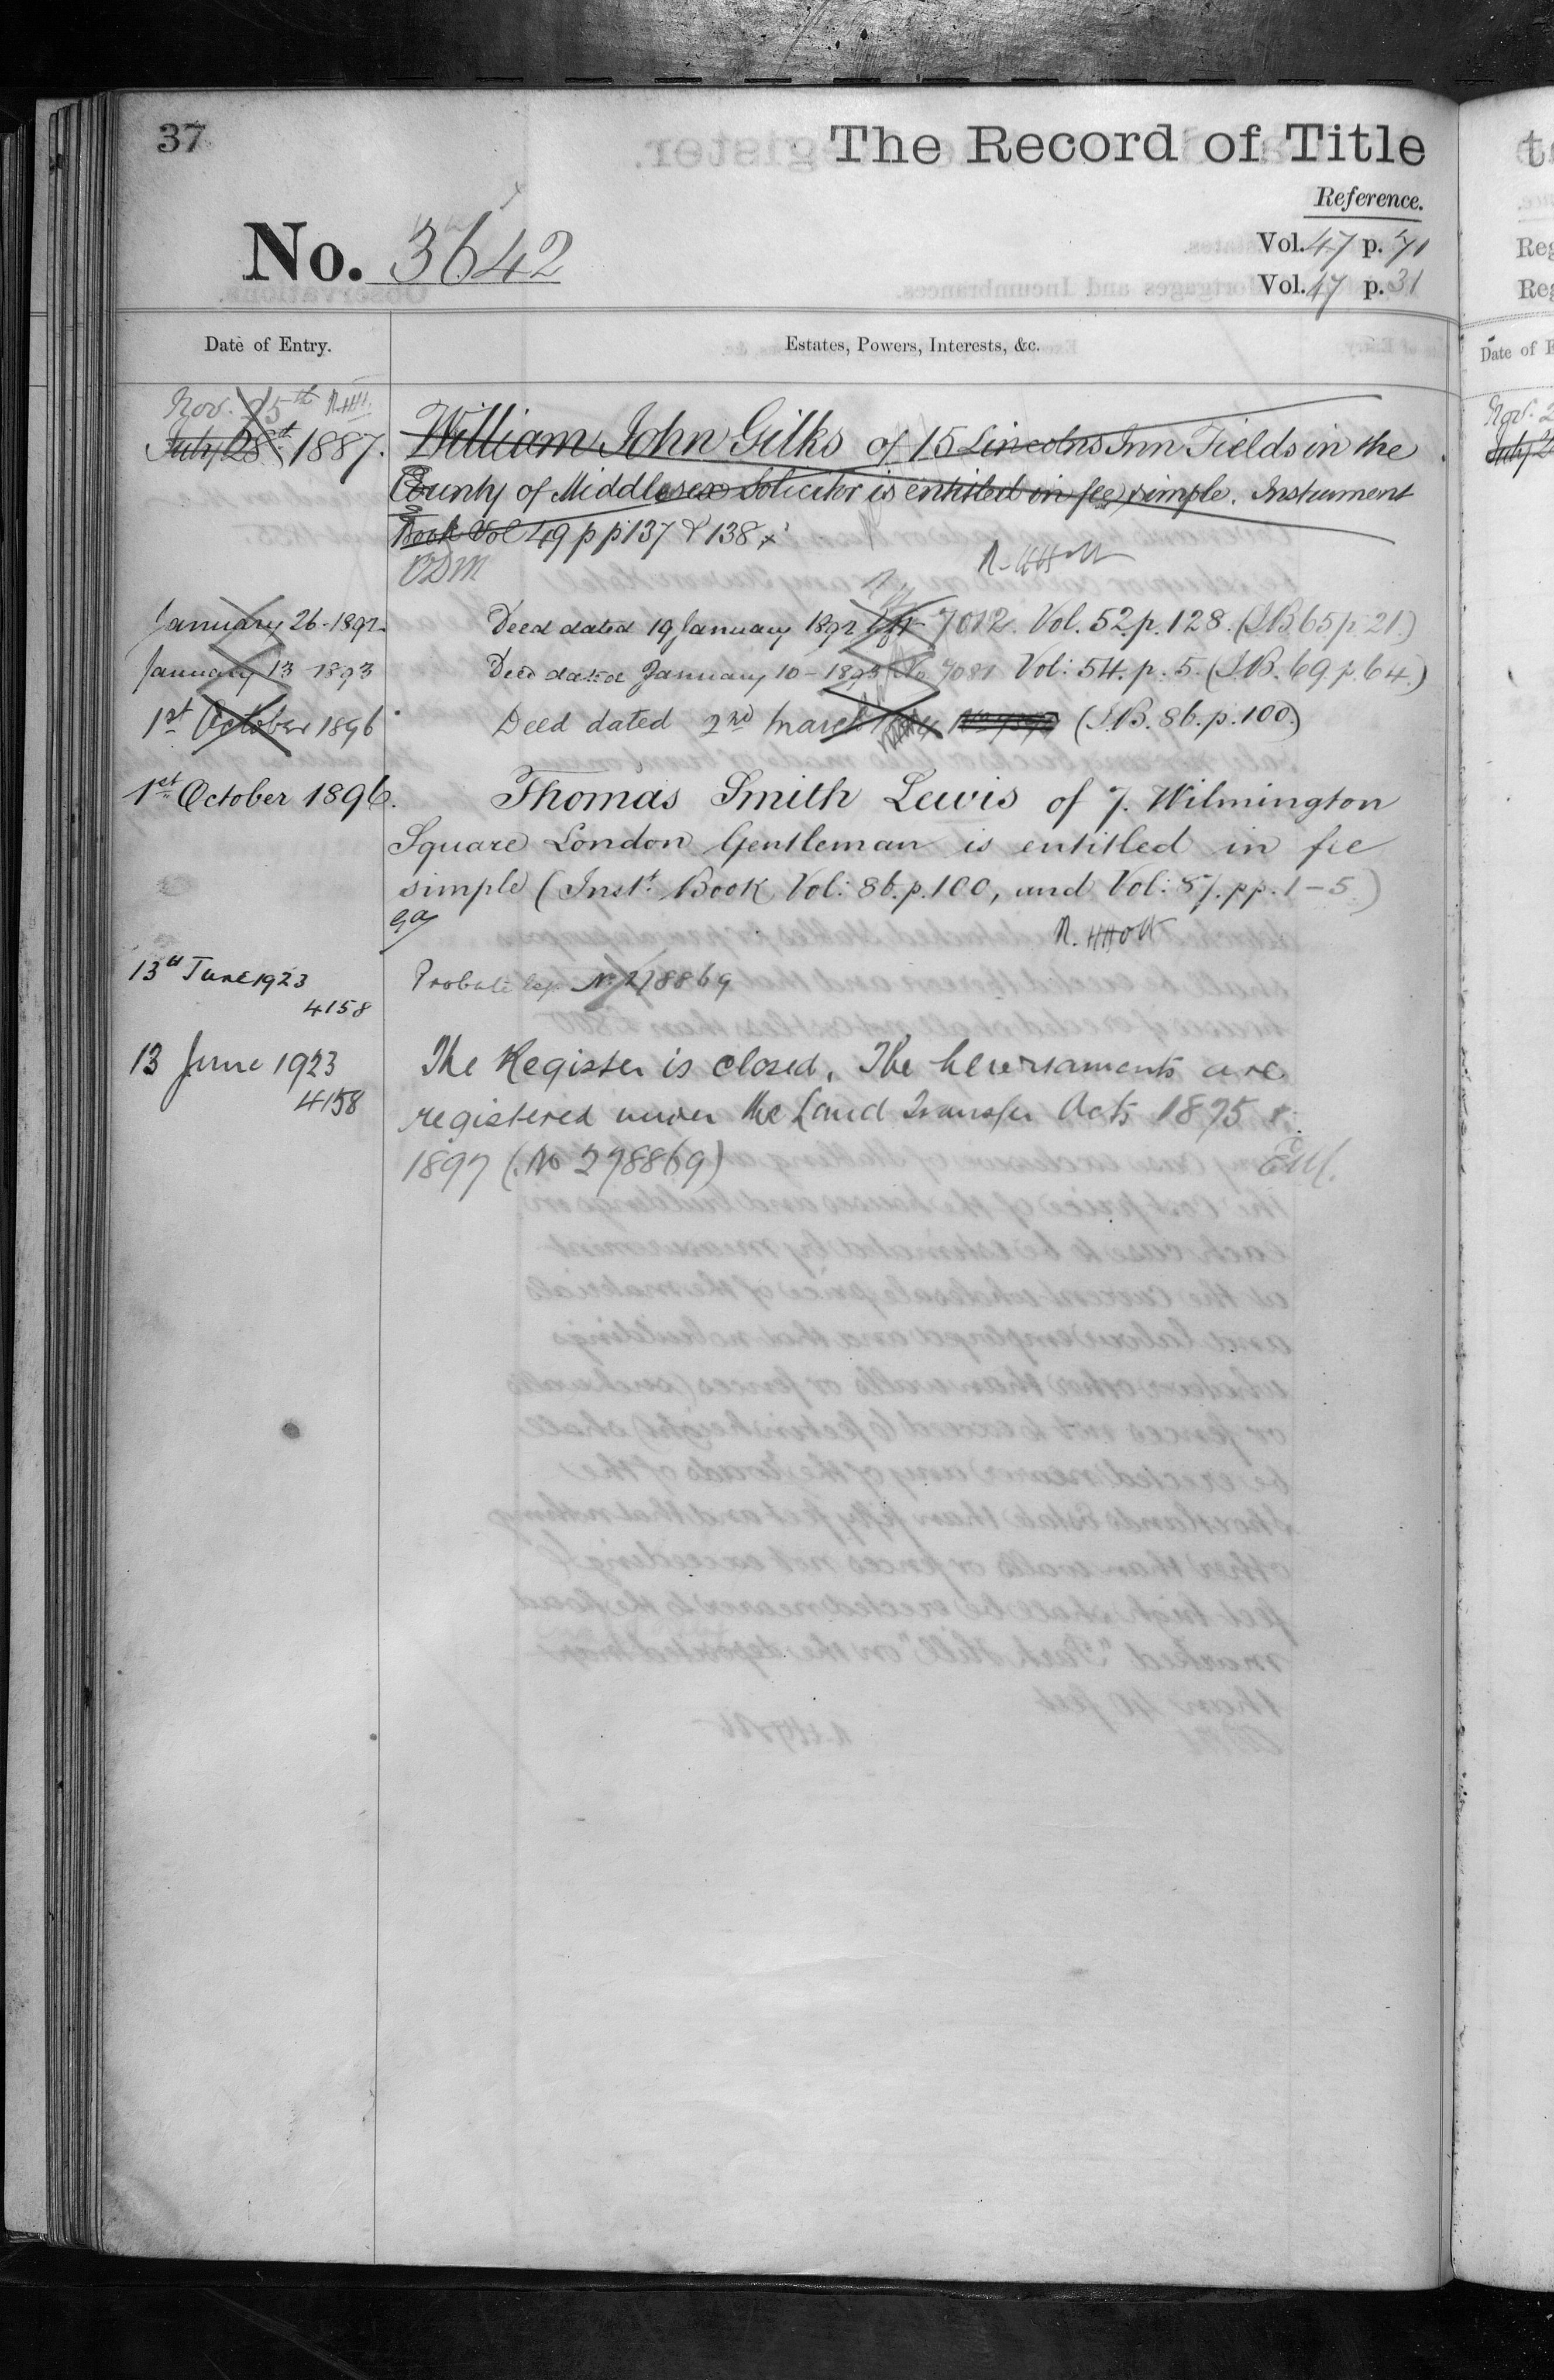 37
The Record of Title
Reference.
No. 3642
Vol. 47 p. 71
Vol. 47 p. 31
Date of Entry.
Estates, Powers, Interests, &c.
Nov. 25th
July 28th 1887.
William John Gilks of 15 Lincolns Inn Fields in the
County of Middlesex Solicitor is entitled in fee simple. Instrument
Book Vol 49 pp 137 & 138
January 26-1892.
Deed dated 19 January 1892 7012. Vol. 52. p. 128. (I.B. 65 p. 21.)
January 13 1893
Deed dated January 10-1893 No 7081 Vol: 54. p. 5. (I.B. 69. p. 64.)
1st October 1896
Deed dated 2nd March (I.B. 86. p. 100.)
1st October 1896.
Thomas Smith Lewis of 7. Wilmington
Square London Gentleman is entitled in fee
simple (Inst. Book Vol: 86. p. 100, and Vol: 87. pp. 1-5.)
13th June 1923
4158
Probate No 278869
13 June 1923
4158
The Register is closed. The hereditaments are
registered under the Land Transfer Acts 1875 &
1897 (No 278869)
Date of